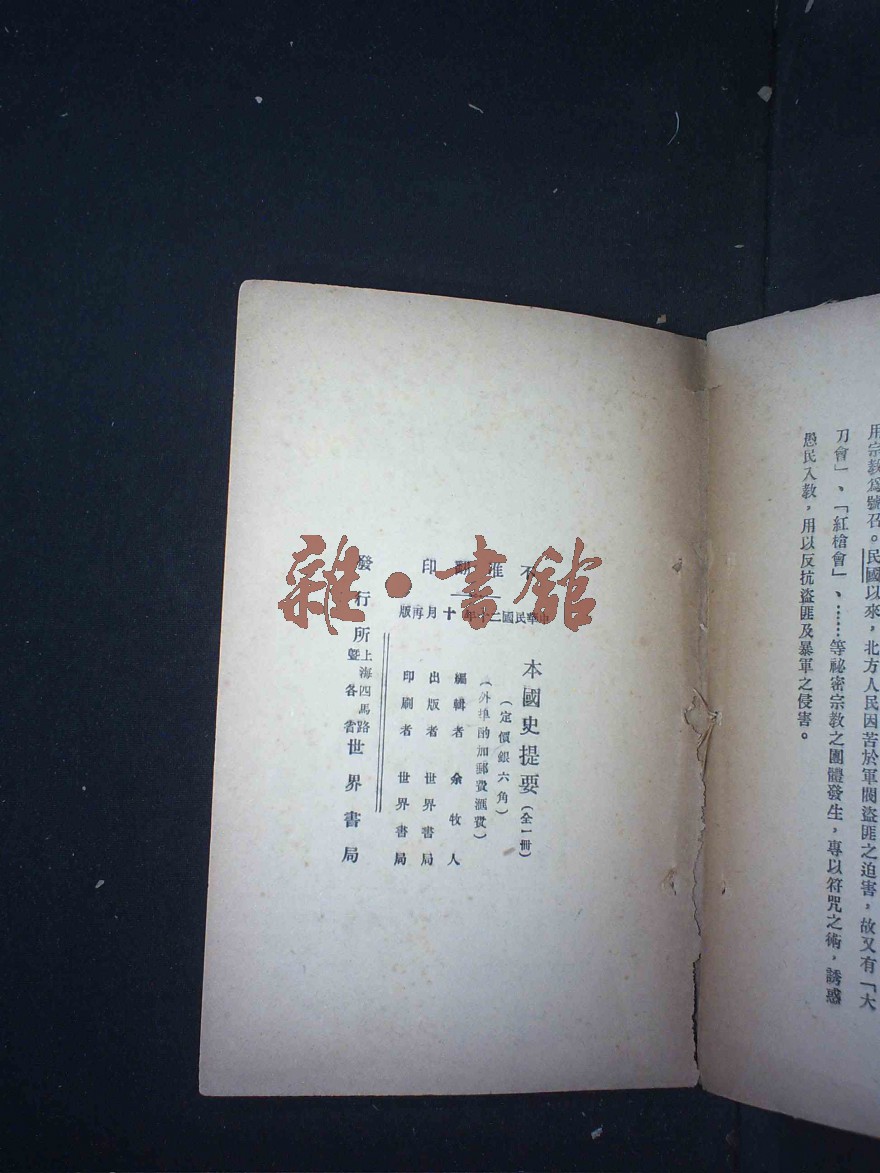 用宗教爲號召。民國以來，北方人民因苦於軍閥盜匪之迫害，故又有「大
刀會」、「紅槍會」、……等祕密宗教之團體發生，專以符咒之術，誘惑
愚民入教，用以反抗盜匪及暴軍之侵害。
不准翻印
中華民國二十年十月再版
本國史提要（全一冊）
（定價銀六角）
（外埠酌加郵費滙費）
編輯者 余牧人
出版者 世界書局
印刷者 世界書局
發行所 上海四馬路暨各省 世界書局
雜·書館